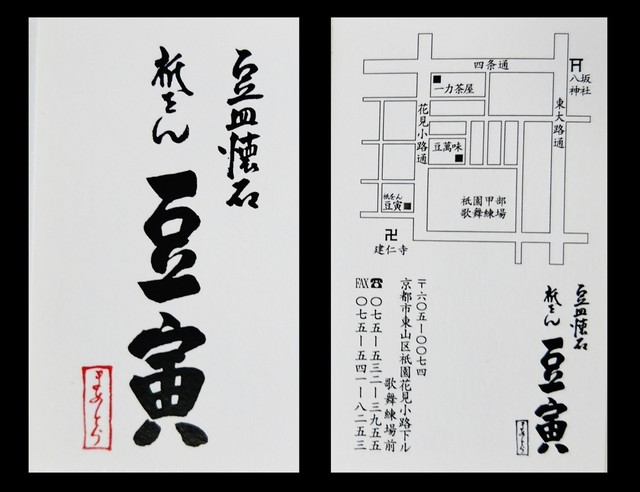 豆皿懐石
祇をん
豆寅
まめとら
四条通
八坂
神社
一力茶屋
花見小路通
東大路通
豆萬味
祇をん
豆寅
祇園甲部
歌舞練場
卍
建仁寺
〒六〇五ー〇〇七四
京都市東山区祇園花見小路下ル
歌舞練場前
☎〇七五ー五三二ー三九五五
FAX〇七五ー五四一ー八二五三
豆皿懐石
祇をん
豆寅
まめとら